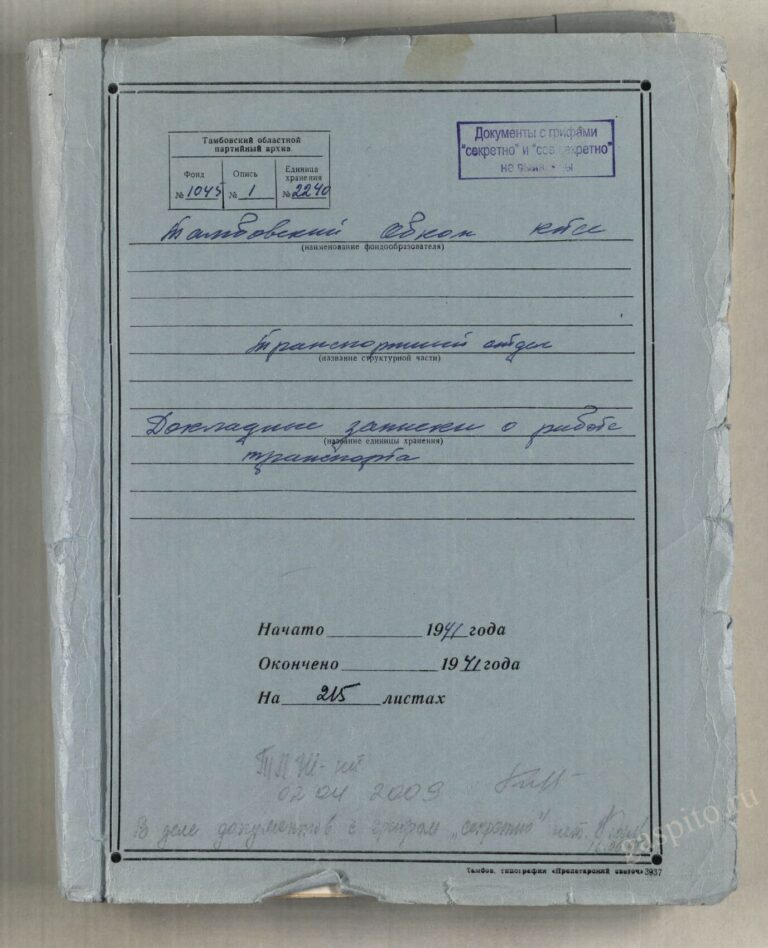 Тамбовский областной
партийный архив
Фонд Опись Единица хранения
№ 1045 № 1 № 2240
Документы с грифами
"секретно" и "сов. секретно"
не
Тамбовский Обком КПСС
(наименование фондообразователя)
Транспортный отдел
(название структурной части)
Докладные записки о работе
(название единицы хранения)
транспорта
Начато 1941 года
Окончено 1941 года
На 215 листах
02 04 2009
В деле документов с грифом „секретно" нет.
gaspito.ru
Тамбов, типография «Пролетарский светоч» 3937